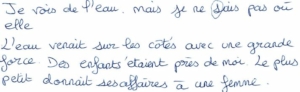 Je vois de l'eau, mais je ne sais pas où
elle
L'eau venait sur les cotés avec une grande
force. Des enfants étaient près de moi. Le plus
petit donnait ses affaires à une femme.